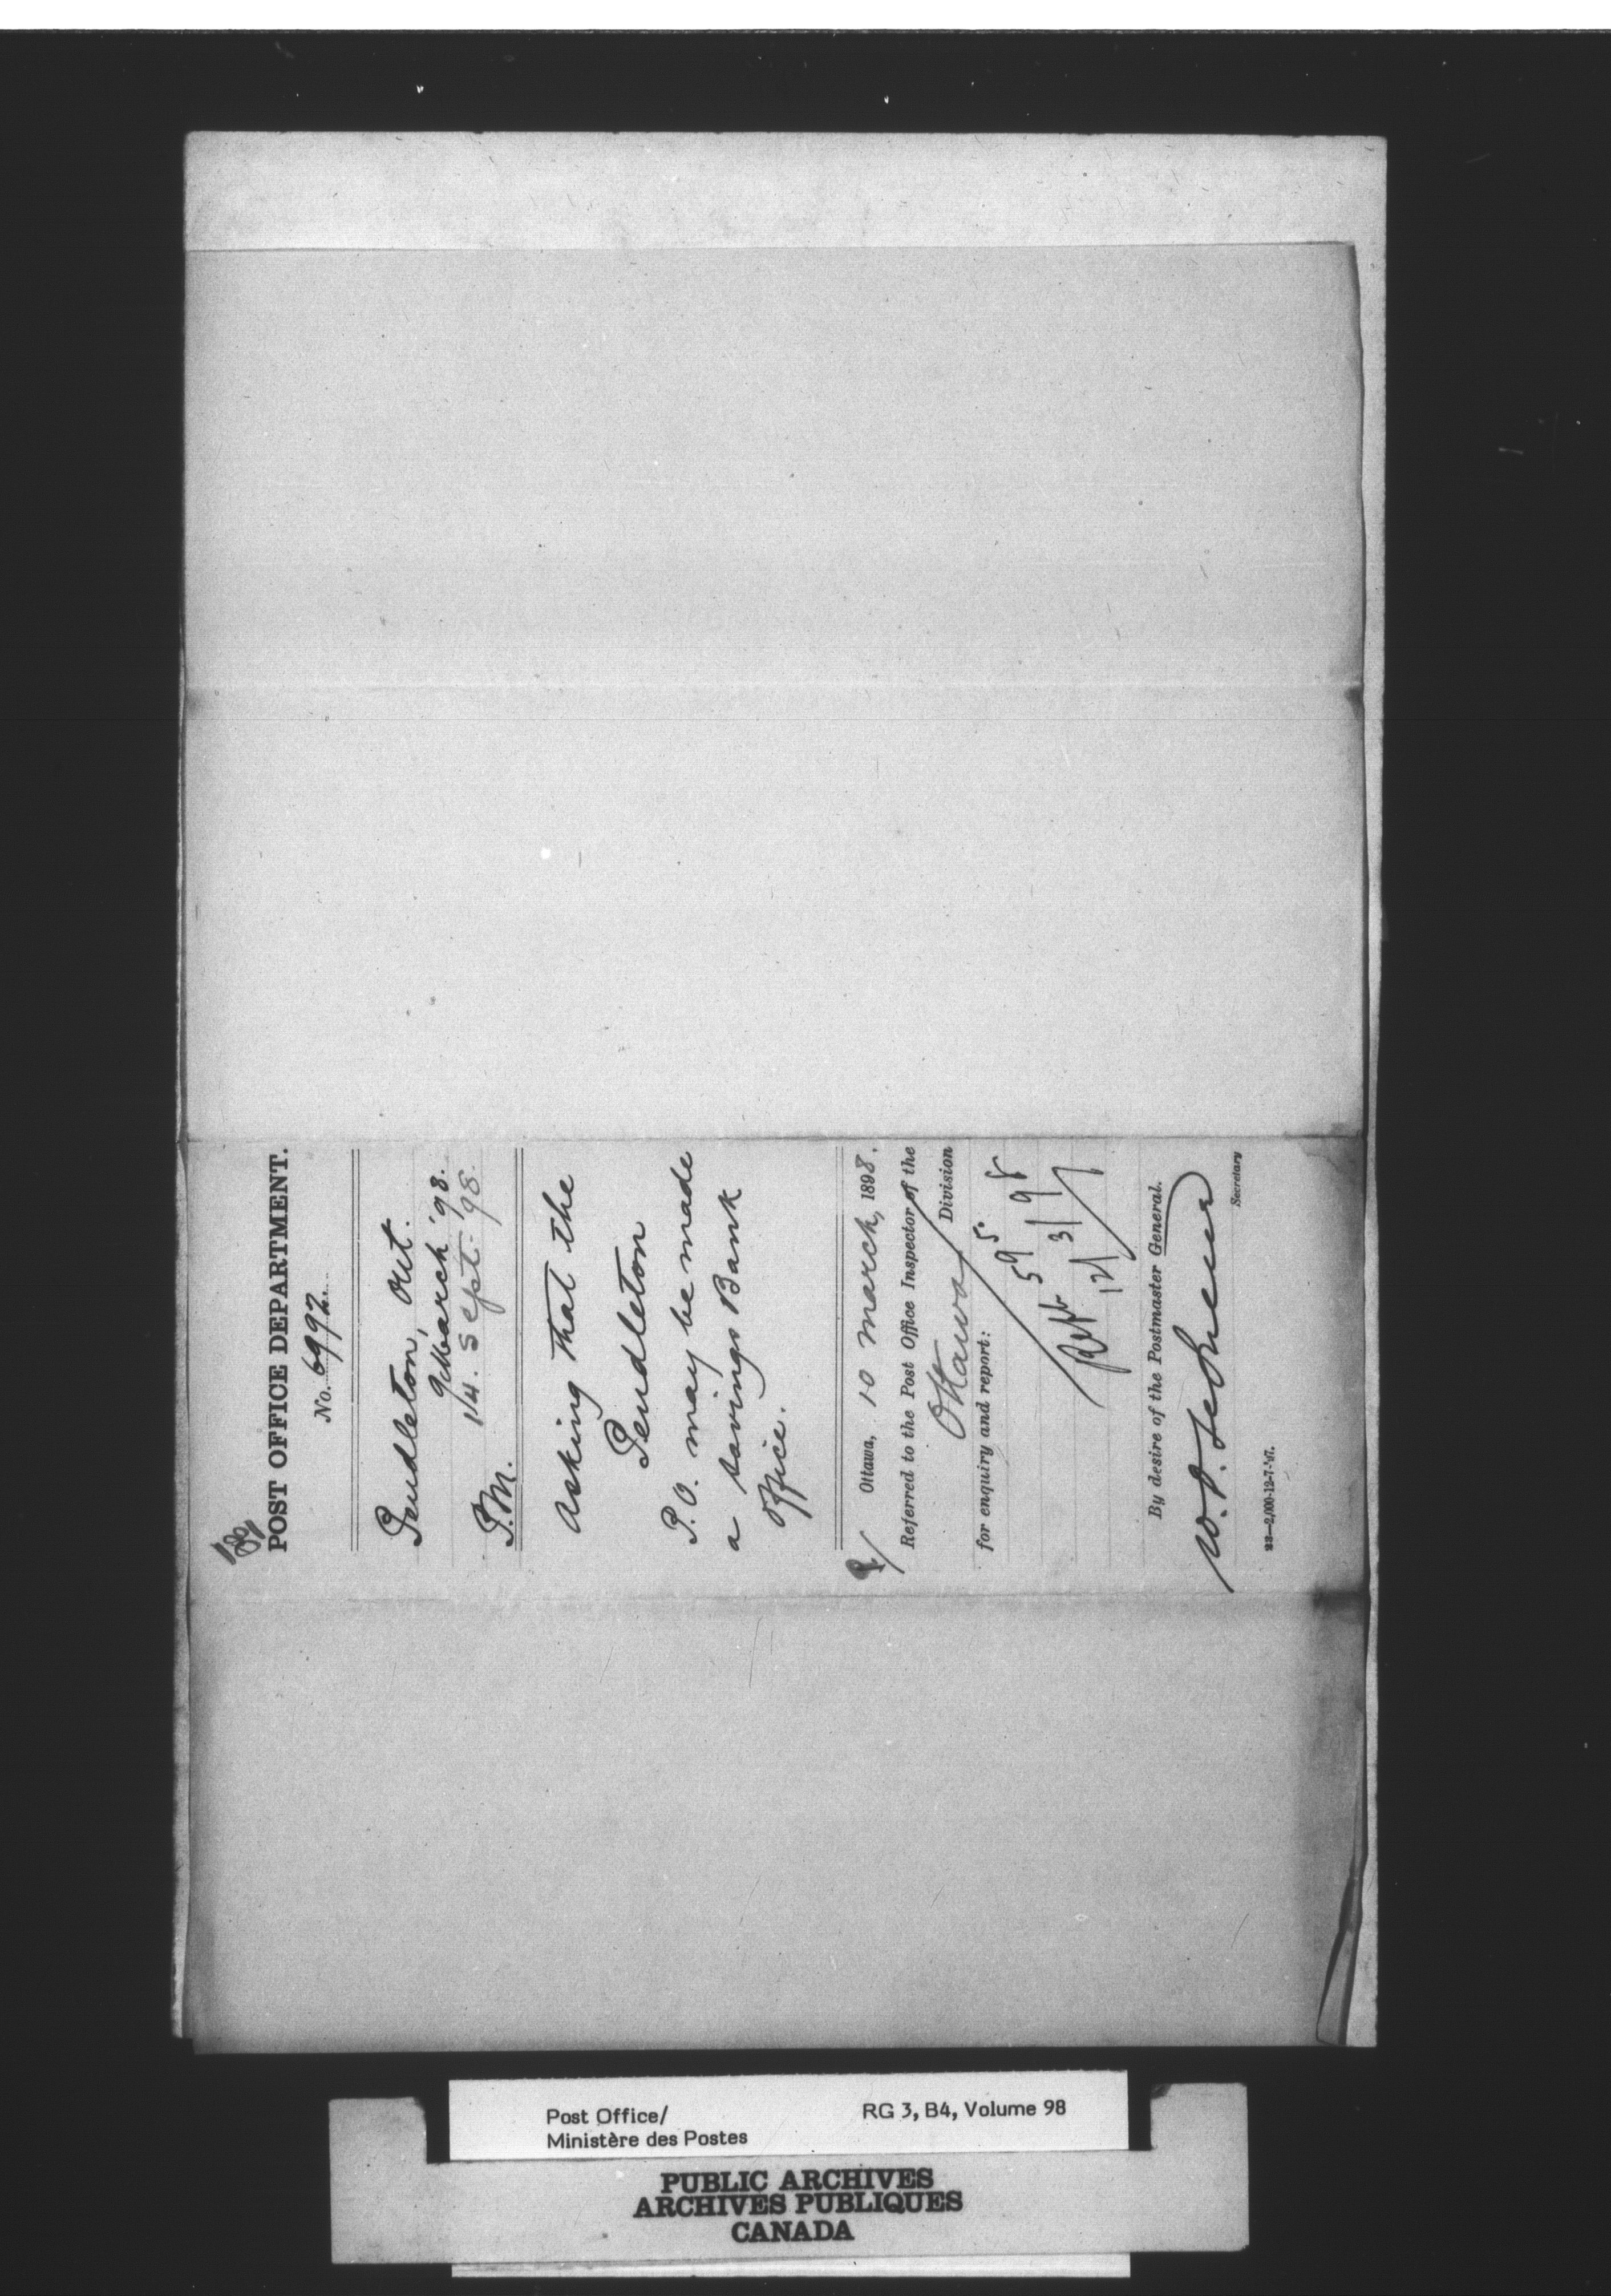 POST OFFICE DEPARTMENT.
No. 6992.
Pendleton, Ont.
9 March '98.
14. Sept. '98.
P.M.
Asking that the
Pendleton
P.O. may be made
a Savings Bank
Office.
Ottawa, 10 March, 1898.
Referred to the Post Office Inspector of the
Ottawa Division
for enquiry and report:
595
12/3/98
By desire of the Postmaster General.
Secretary
23—2,000-12-7-'97.
Post Office/
Ministère des Postes
RG 3, B4, Volume 98
PUBLIC ARCHIVES
ARCHIVES PUBLIQUES
CANADA